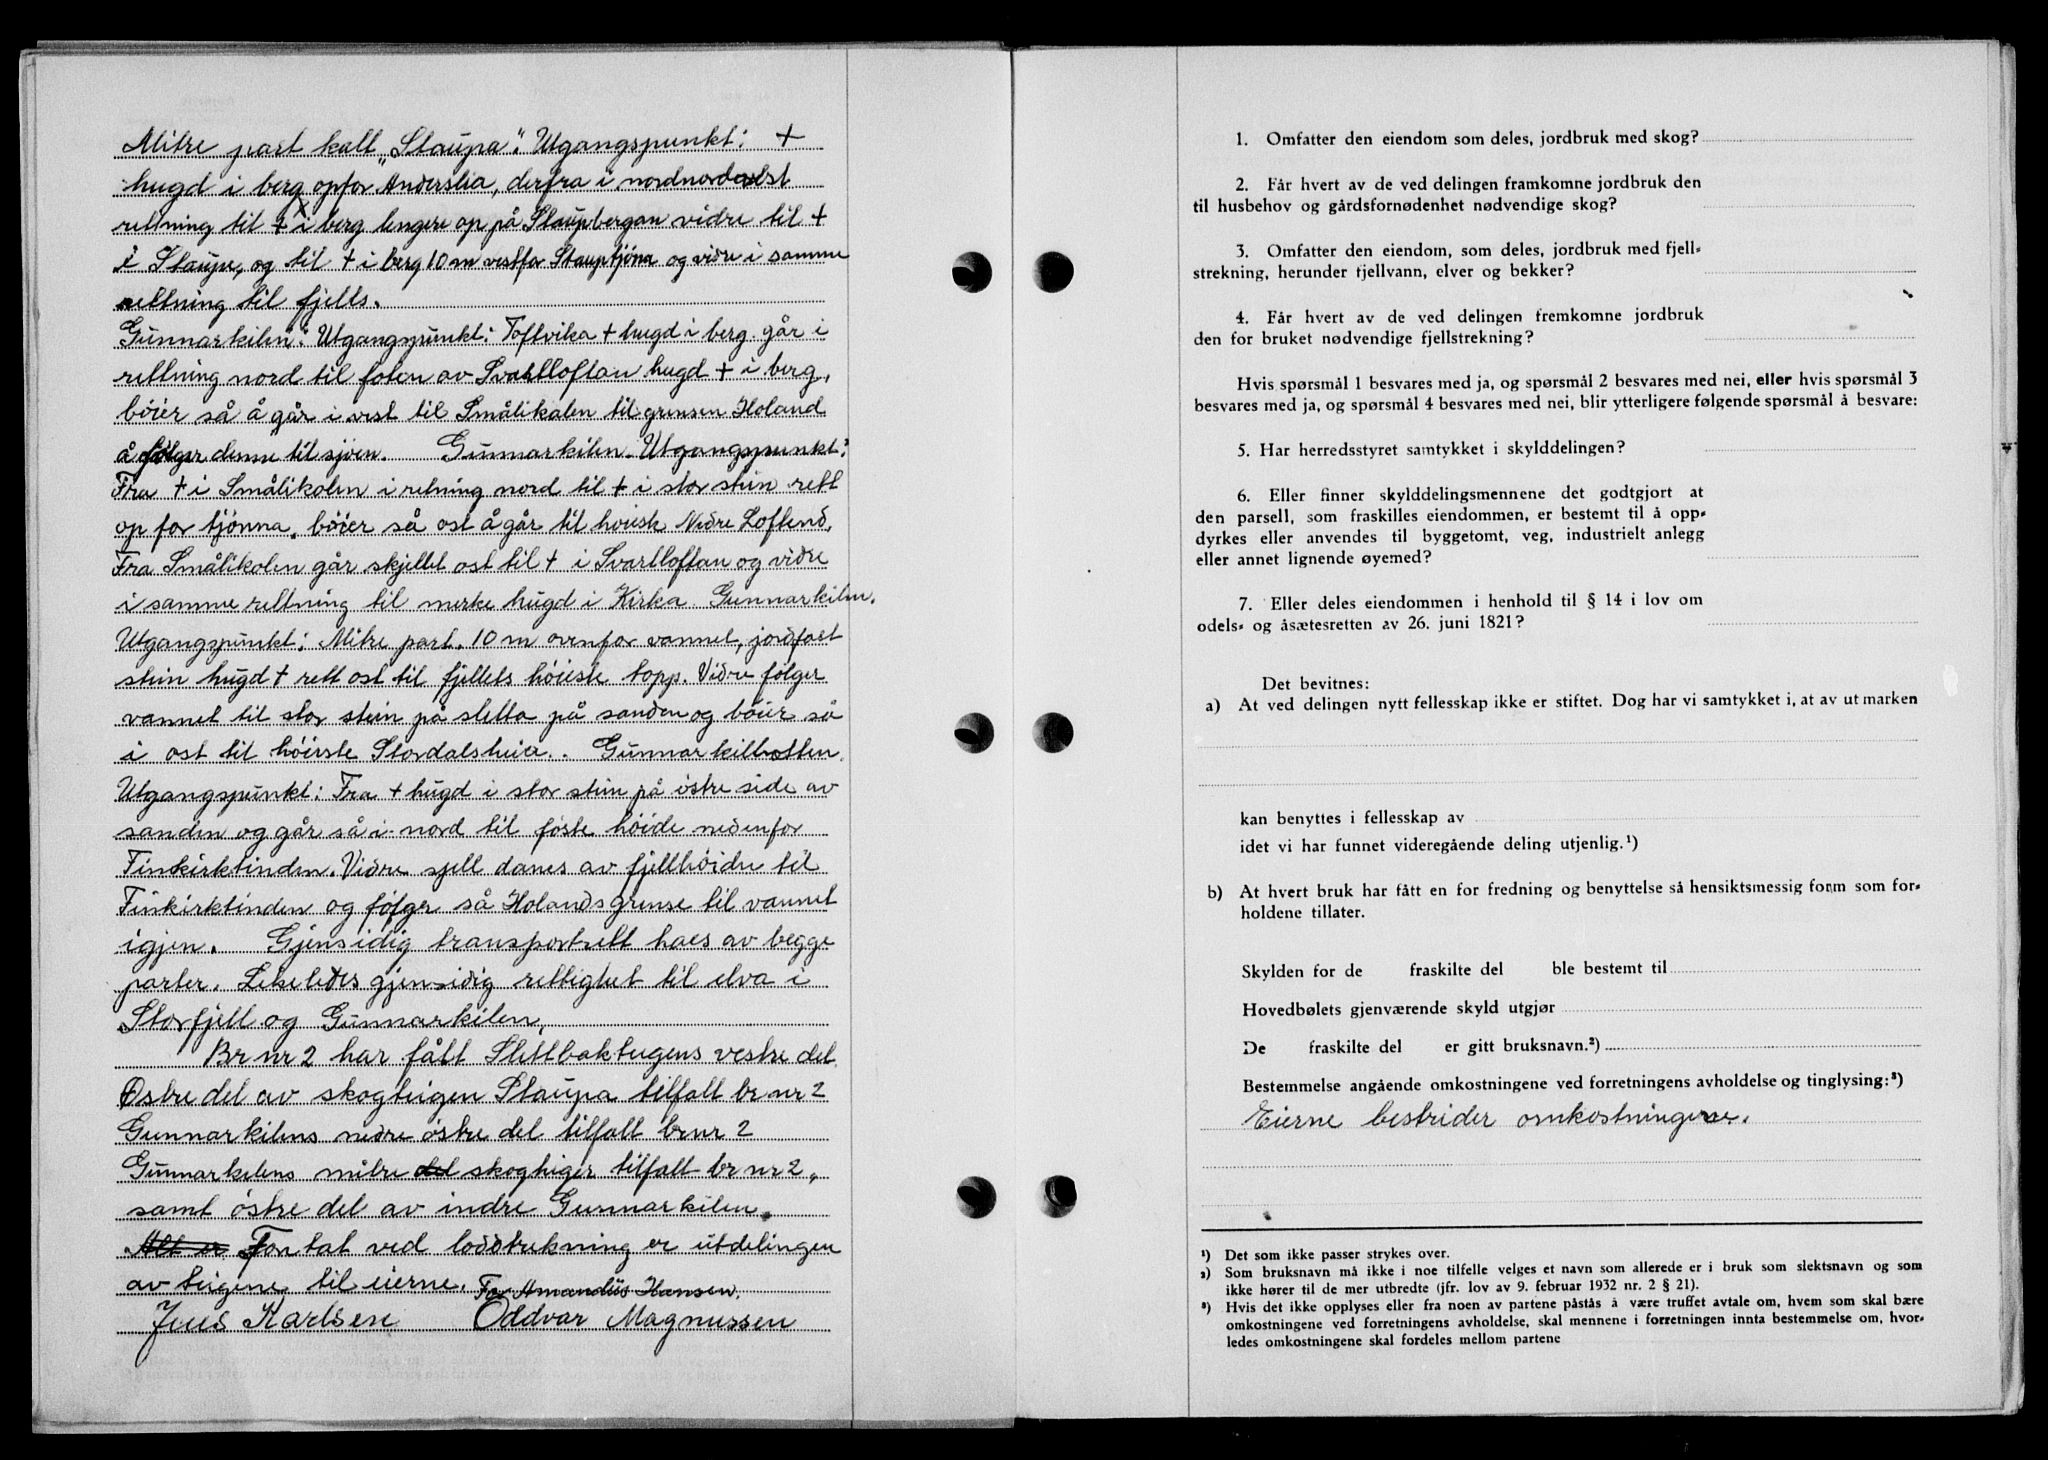 Mitre part kalt „Staupa". Utgangspunkt: +
hugd i berg opfor Anderslia, derfra i nordnordvest
rettning til + i berg lengere op på Staupbergan vidre til +
i Staupe, og til + i berg 10 m vestfor Stauptjöna og vidre i samme
rettning til fjells.
Gunnarkilen: Utgangspunkt: Toftvika + hugd i berg. går i
rettning nord til foten av Svartloftan hugd + i berg,
böier så å går i vest til Smålikolen til grensen Holand
å følger denne til sjöen. Gunnarkilen. Utgangspunkt:
Fra + i Smålikolen i retning nord til + i stor stein rett
op for tjönna, böier så ost å går til höiesk Nedre Loftend,
Fra Smålikolen går skjellet ost til + i Svartloftan og vidre
i samme rettning til merke hugd i Kirka Gunnarkilen.
Utgangspunkt: Mitre part. 10 m ovenfor vannet, jordfast
stein hugd + rett ost til fjellets höieste topp. Vidre følger
vannet til stor stein på sletta på sanden og böier så
i ost til höieste Stordalsheia. Gunnarkilbotten.
Utgangspunkt: Fra + hugd i stor stein på östre side av
sanden og går så i nord til föste höide nedenfor
Finkirktinden. Vidre sjell danes av fjellhöiden til
Finkirktinden og følger så Holands grense til vannet
igjen. Gjensidig transportrett haes av begge
parter. Likeledes gjensidig rettighet til elva i
Storfjell og Gunnarkilen.
Br nr 2 har fått Slettbakteigens vestre del.
Østre del av skogteigen Staupa tilfalt br nr 2
Gunnarkilens nedre östre del tilfalt br nr 2
Gunnarkilens mitre del skogteiger tilfalt br nr 2,
samt östre del av indre Gunnarkilen.
Alt er Fontat ved loddtrekning er utdelingen
av teigene til eierne. For Amandus Hansen.
Jens Karlsen Oddvar Magnussen
1. Omfatter den eiendom som deles, jordbruk med skog?
2. Får hvert av de ved delingen framkomne jordbruk den
til husbehov og gårdsfornødenhet nødvendige skog?
3. Omfatter den eiendom, som deles, jordbruk med fjell-
strekning, herunder fjellvann, elver og bekker?
4. Får hvert av de ved delingen fremkomne jordbruk
den for bruket nødvendige fjellstrekning?
Hvis spørsmål 1 besvares med ja, og spørsmål 2 besvares med nei, eller hvis spørsmål 3
besvares med ja, og spørsmål 4 besvares med nei, blir ytterligere følgende spørsmål å besvare:
5. Har herredsstyret samtykket i skylddelingen?
6. Eller finner skylddelingsmennene det godtgjort at
den parsell, som fraskilles eiendommen, er bestemt til å opp-
dyrkes eller anvendes til byggetomt, veg, industrielt anlegg
eller annet lignende øyemed?
7. Eller deles eiendommen i henhold til § 14 i lov om
odels- og åsætesretten av 26. juni 1821?
Det bevitnes:
a) At ved delingen nytt fellesskap ikke er stiftet. Dog har vi samtykket i, at av utmarken
kan benyttes i fellesskap av
idet vi har funnet videregående deling utjenlig.¹)
b) At hvert bruk har fått en for fredning og benyttelse så hensiktsmessig form som for-
holdene tillater.
Skylden for de fraskilte del ble bestemt til
Hovedbølets gjenværende skyld utgjør
De fraskilte del er gitt bruksnavn.²)
Bestemmelse angående omkostningene ved forretningens avholdelse og tinglysing:³)
Eierne bestrider omkostningene.
¹) Det som ikke passer strykes over.
²) Som bruksnavn må ikke i noe tilfelle velges et navn som allerede er i bruk som slektsnavn og som
ikke hører til de mer utbredte (jfr. lov av 9. februar 1932 nr. 2 § 21).
³) Hvis det ikke opplyses eller fra noen av partene påstås å være truffet avtale om, hvem som skal bære
omkostningene ved forretningens avholdelse, skal mennene i forretningen innta bestemmelse om, hvor-
ledes omkostningene skal fordeles mellom partene